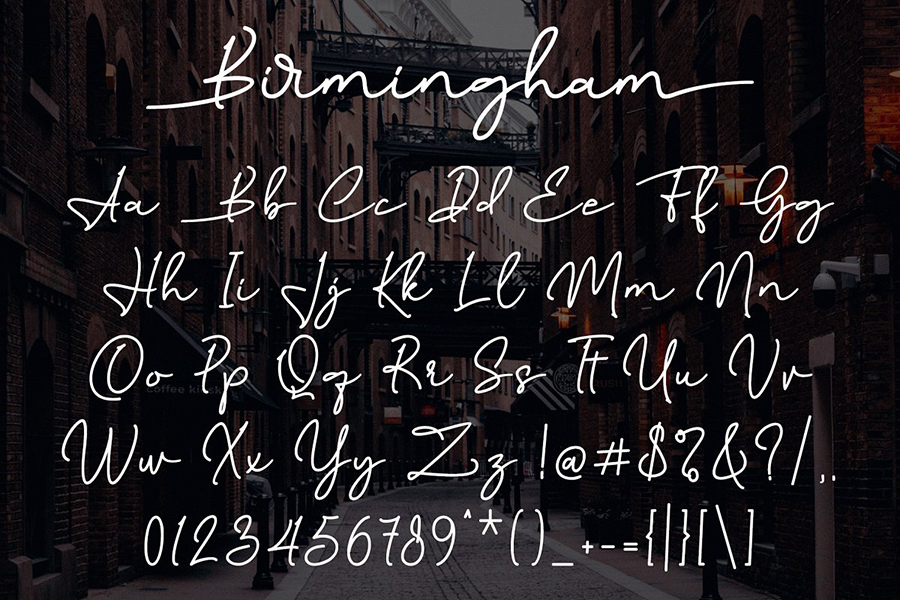 Birmingham
Aa Bb Cc Dd Ee Ff Gg
Hh Ii Jj Kk Ll Mm Nn
Oo Pp Qq Rr Ss Tt Uu Vv
Coffee
Ww Xx Yy Zz !@#$%&?/,.
0123456789^*()_+-={|}[\]